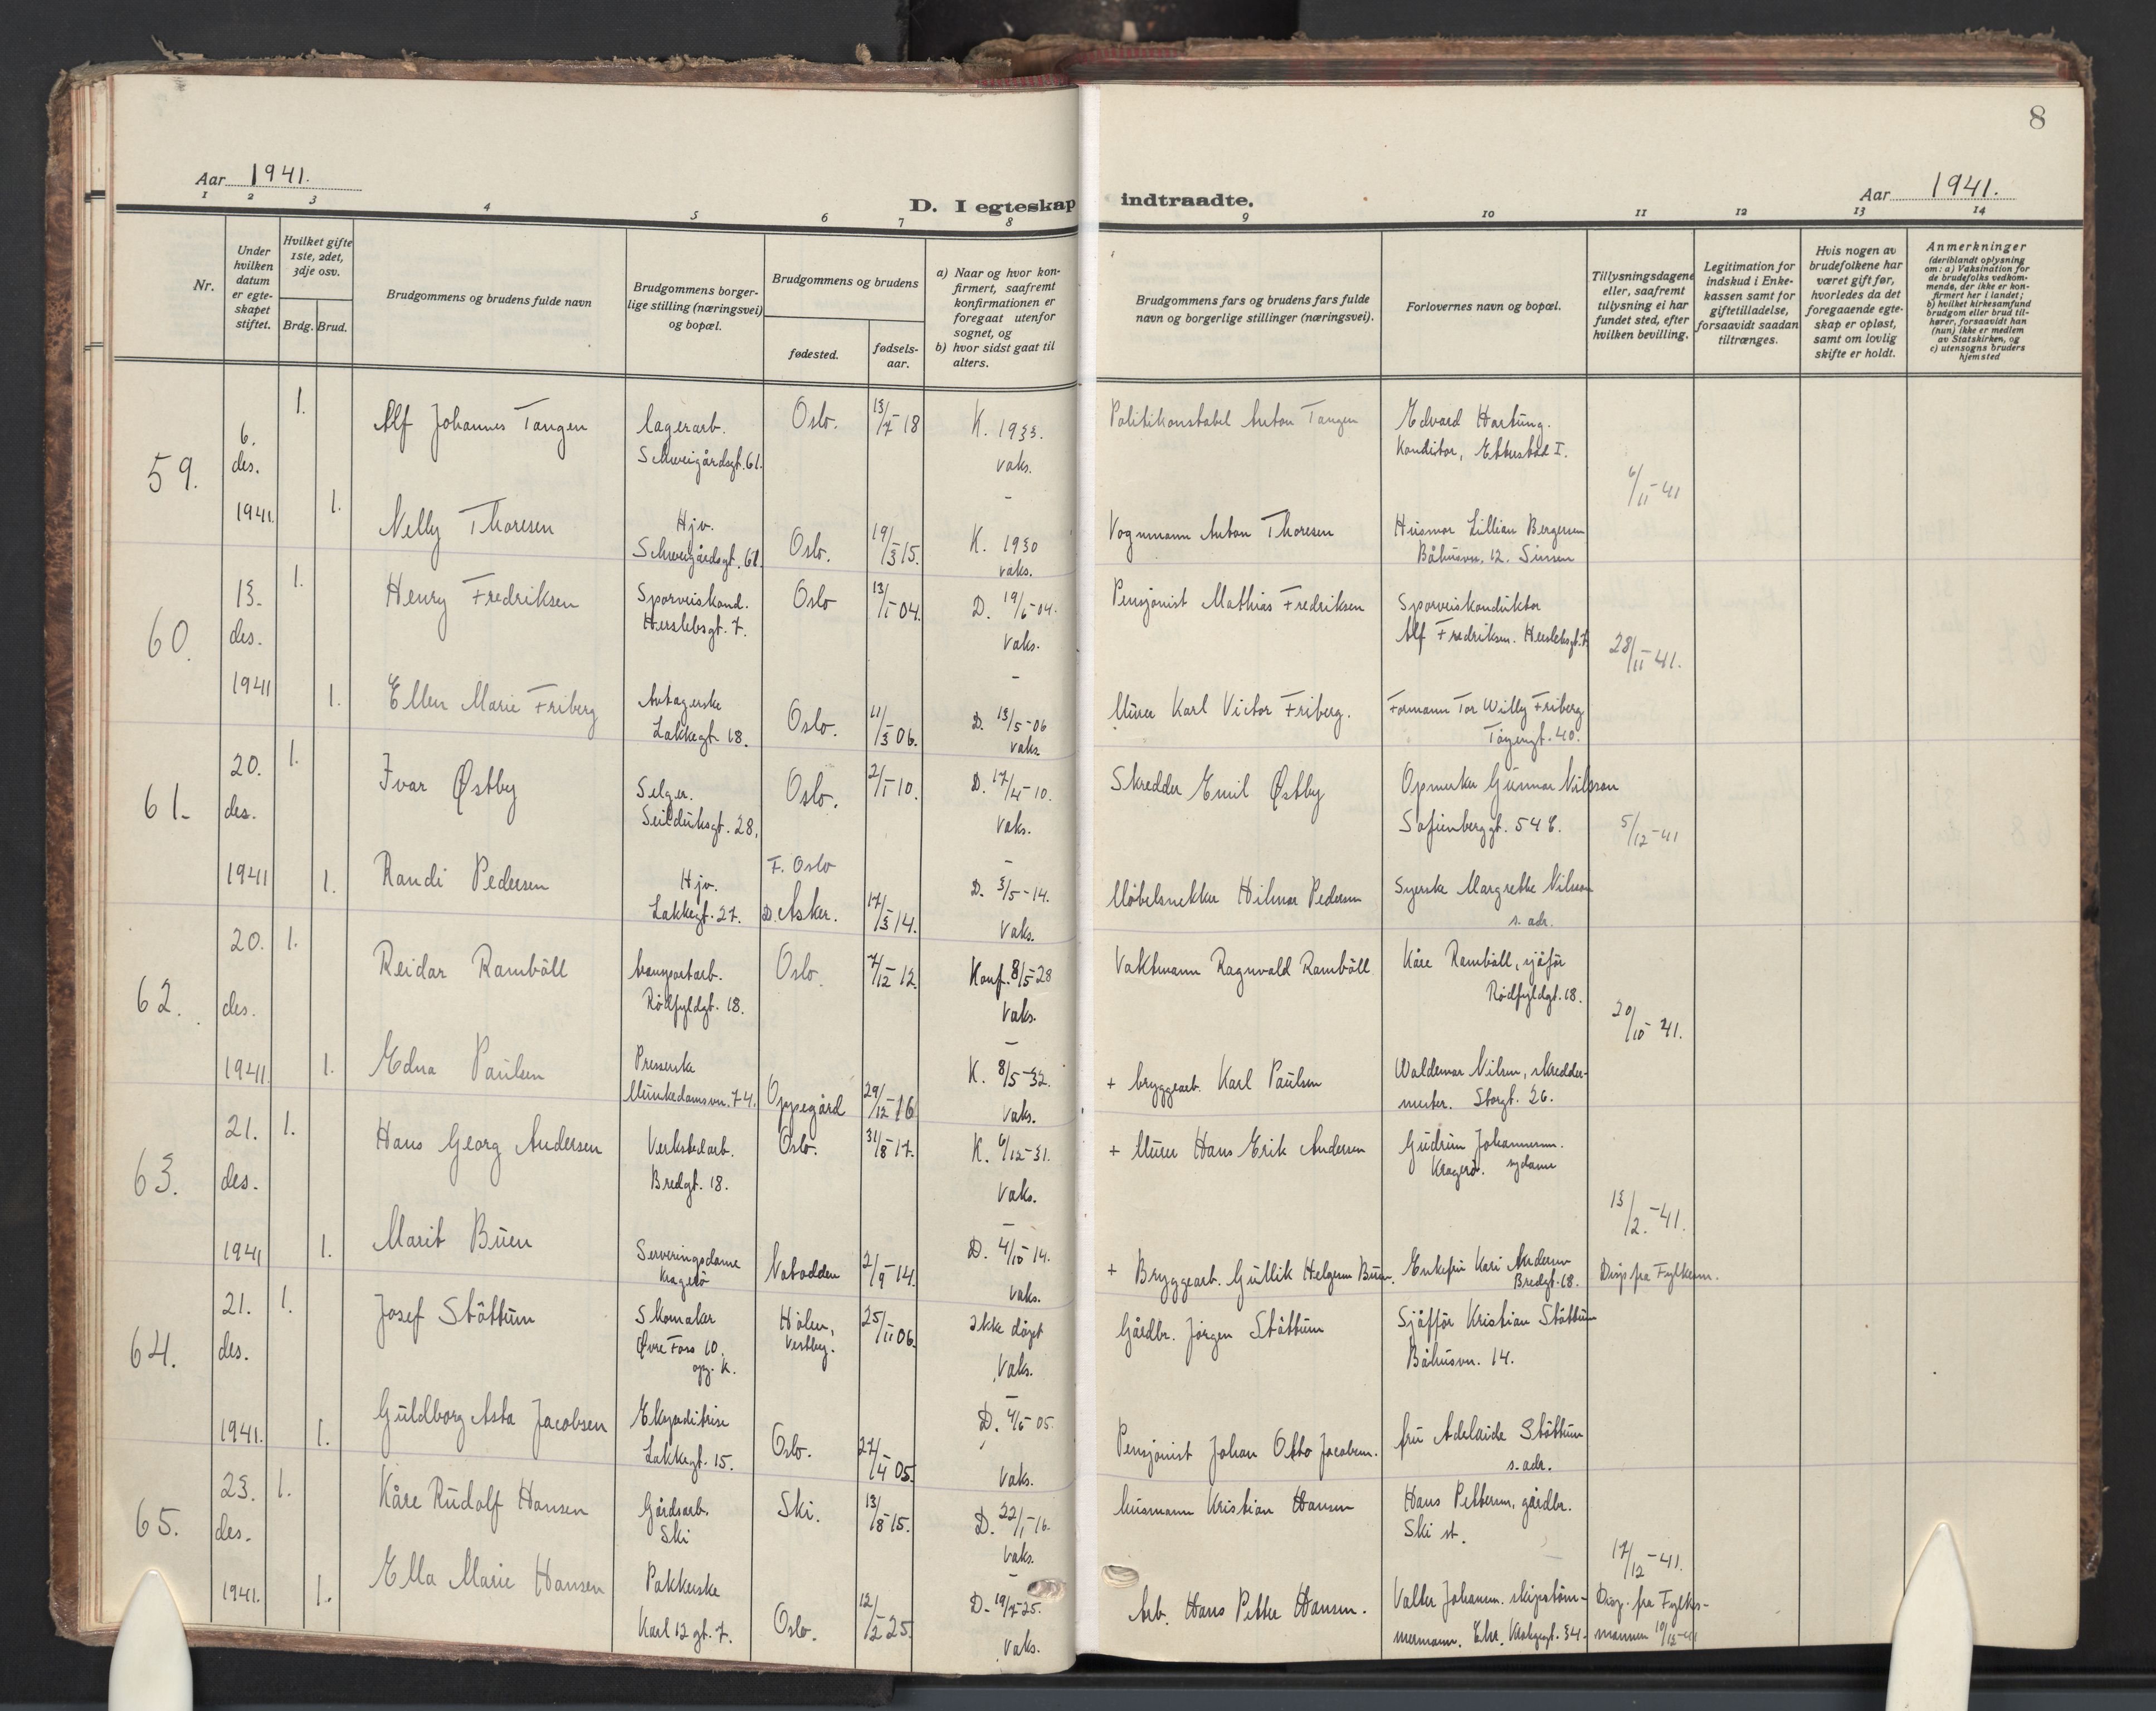 8
Aar 1941.
D. I egteskap indtraadte.
Aar 1941.
1 2 3 4 5 6 7 8 9 10 11 12 13 14
Nr.
Under hvilken datum er egte-skapet stiftet.
Hvilket gifte 1ste, 2det, 3dje osv.
Brdg. Brud.
Brudgommens og brudens fulde navn
Brudgommens borger-lige stilling (næringsvei) og bopæl.
Brudgommens og brudens
fødested.
fødsels-aar.
a) Naar og hvor kon-firmert, saafremt konfirmationen er foregaat utenfor sognet, og
b) hvor sidst gaat til alters.
Brudgommens fars og brudens fars fulde navn og borgerlige stillinger (næringsvei).
Forlovernes navn og bopæl.
Tillysningsdagene eller, saafremt tillysning ei har fundet sted, efter hvilken bevilling.
Legitimation for indskud i Enke-kassen samt for giftetilladelse, forsaavidt saadan tiltrænges.
Hvis nogen av brudefolkene har været gift før, hvorledes da det foregaaende egte-skap er opløst, samt om lovlig skifte er holdt.
Anmerkninger (deriblandt oplysning om: a) Vaksination for de brudefolks vedkom-mende, der ikke er kon-firmert her i landet; b) hvilket kirkesamfund brudgom eller brud til-hører, forsaavidt han (hun) ikke er medlem av Statskirken, og c) utensogns bruders hjemsted
59. 6. des. 1941. 1. Alf Johannes Tangen lagerarb. Schweigårdsgt. 61. Oslo. 13/7-18 K. 1933. vaks. Politikonstabel Anton Tangen Edvard Hartung. Konditor, I. 6/11-41
1. Nelly Thoresen Hjv. Schweigårdsgt. 61. Oslo. 19/3-15. K. 1930 vaks. Vognmann Anton Thoresen Husmor Lillian Bergersen Båhusvn. 12. Sinsen
60. 13. des. 1941 1. Henry Fredriksen Sporveiskond. Herslebsgt. 7. Oslo 13/1-04. D. 19/6-04. vaks. Pensjonist Mathias Fredriksen Sporveiskonduktør Alf Fredriksen. Herslebsgt. 7. 28/11-41.
1. Ellen Marie Friberg Lakkegt. 18. Oslo. 11/3-06. D. 13/5-06 vaks. Murer Karl Victor Friberg. Formann Tor Willy Friberg Tøyengt. 40.
61. 20. des. 1941 1. Ivar Østby Selger. Seilduksgt. 28. Oslo. 2/1-10. D. 17/4-10. vaks. Skredder Emil Østby Opmerker Gunnar Nilsson Sofienberggt. 54 5/12-41
1. Randi Pedersen Hjv. Lakkegt. 27. F. Oslo D. Asker. 17/3-14. D. 3/5-14. vaks. Møbelsnekker Hilmar Pedersen Syerske Margrethe Nilsson s. adr.
62. 20. des. 1941. 1. Reidar Ramböll transportarb. Rödfyldgt. 18. Oslo. 7/12-12. Konf. 8/5-28 vaks. Vaktmann Ragnvald Ramböll Kåre Ramböll, sjåför Rödfyldgt. 18. 20/10-41.
1. Edna Paulsen Presserske Munkedamsvn. 74. Oppegård 29/12-16 K. 8/5-32. vaks. + bryggearb. Karl Paulsen Waldemar Nilsen, skredder-mester. Storgt. 26.
63. 21. des. 1941 1. Hans Georg Andersen Verkstedarb. Bredgt. 18. Oslo. 31/8-17. K. 6/12-31. vaks. + Murer Hans Erik Andersen Gudrun Johannesen. Kragerö. sydame 13/12-41.
1. Marit Buen Serveringsdame Kragerö Notodden 2/9-14. D. 4/10-14. vaks. + Bryggearb. Gullik Helgesen Buen. Enkefru Kari Andersen Bredgt. 18. Disp fra Fylkesm.
64. 21. des. 1941. 1. Josef Stöttum Skomaker Øvre Foss 10. opg. K. Hölen, Vestby. 25/11-06. Ikke döpt Vaks. Gårdbr. Jörgen Stöttum Sjåfför Kristian Stöttum Båhusvn. 14.
1. Guldborg Asta Jacobsen Ekspeditrise Lakkegt. 15. Oslo. 27/4-05. D. 4/6-05. vaks. Pensjonist Johan Otto Jacobsen. fru Adelaide Stöttum s. adr.
65. 23. des. 1941. 1. Kåre Rudolf Hansen Gårdsarb. Ski Ski. 13/8-15. D. 22/1-16. Vaks. Kristian Hansen Hans Pettersen, gårdbr. Ski st. 17/12-41.
1. Ella Marie Hansen Pakkerske Karl 12 gt. 7. Oslo. 12/2-25. D. 19/7-25. vaks. Arb. Hans Petter Hansen. Valter Johansen. skipstöm-mermann. 34. Disp. fra Fylkes-mannen 10/12-41